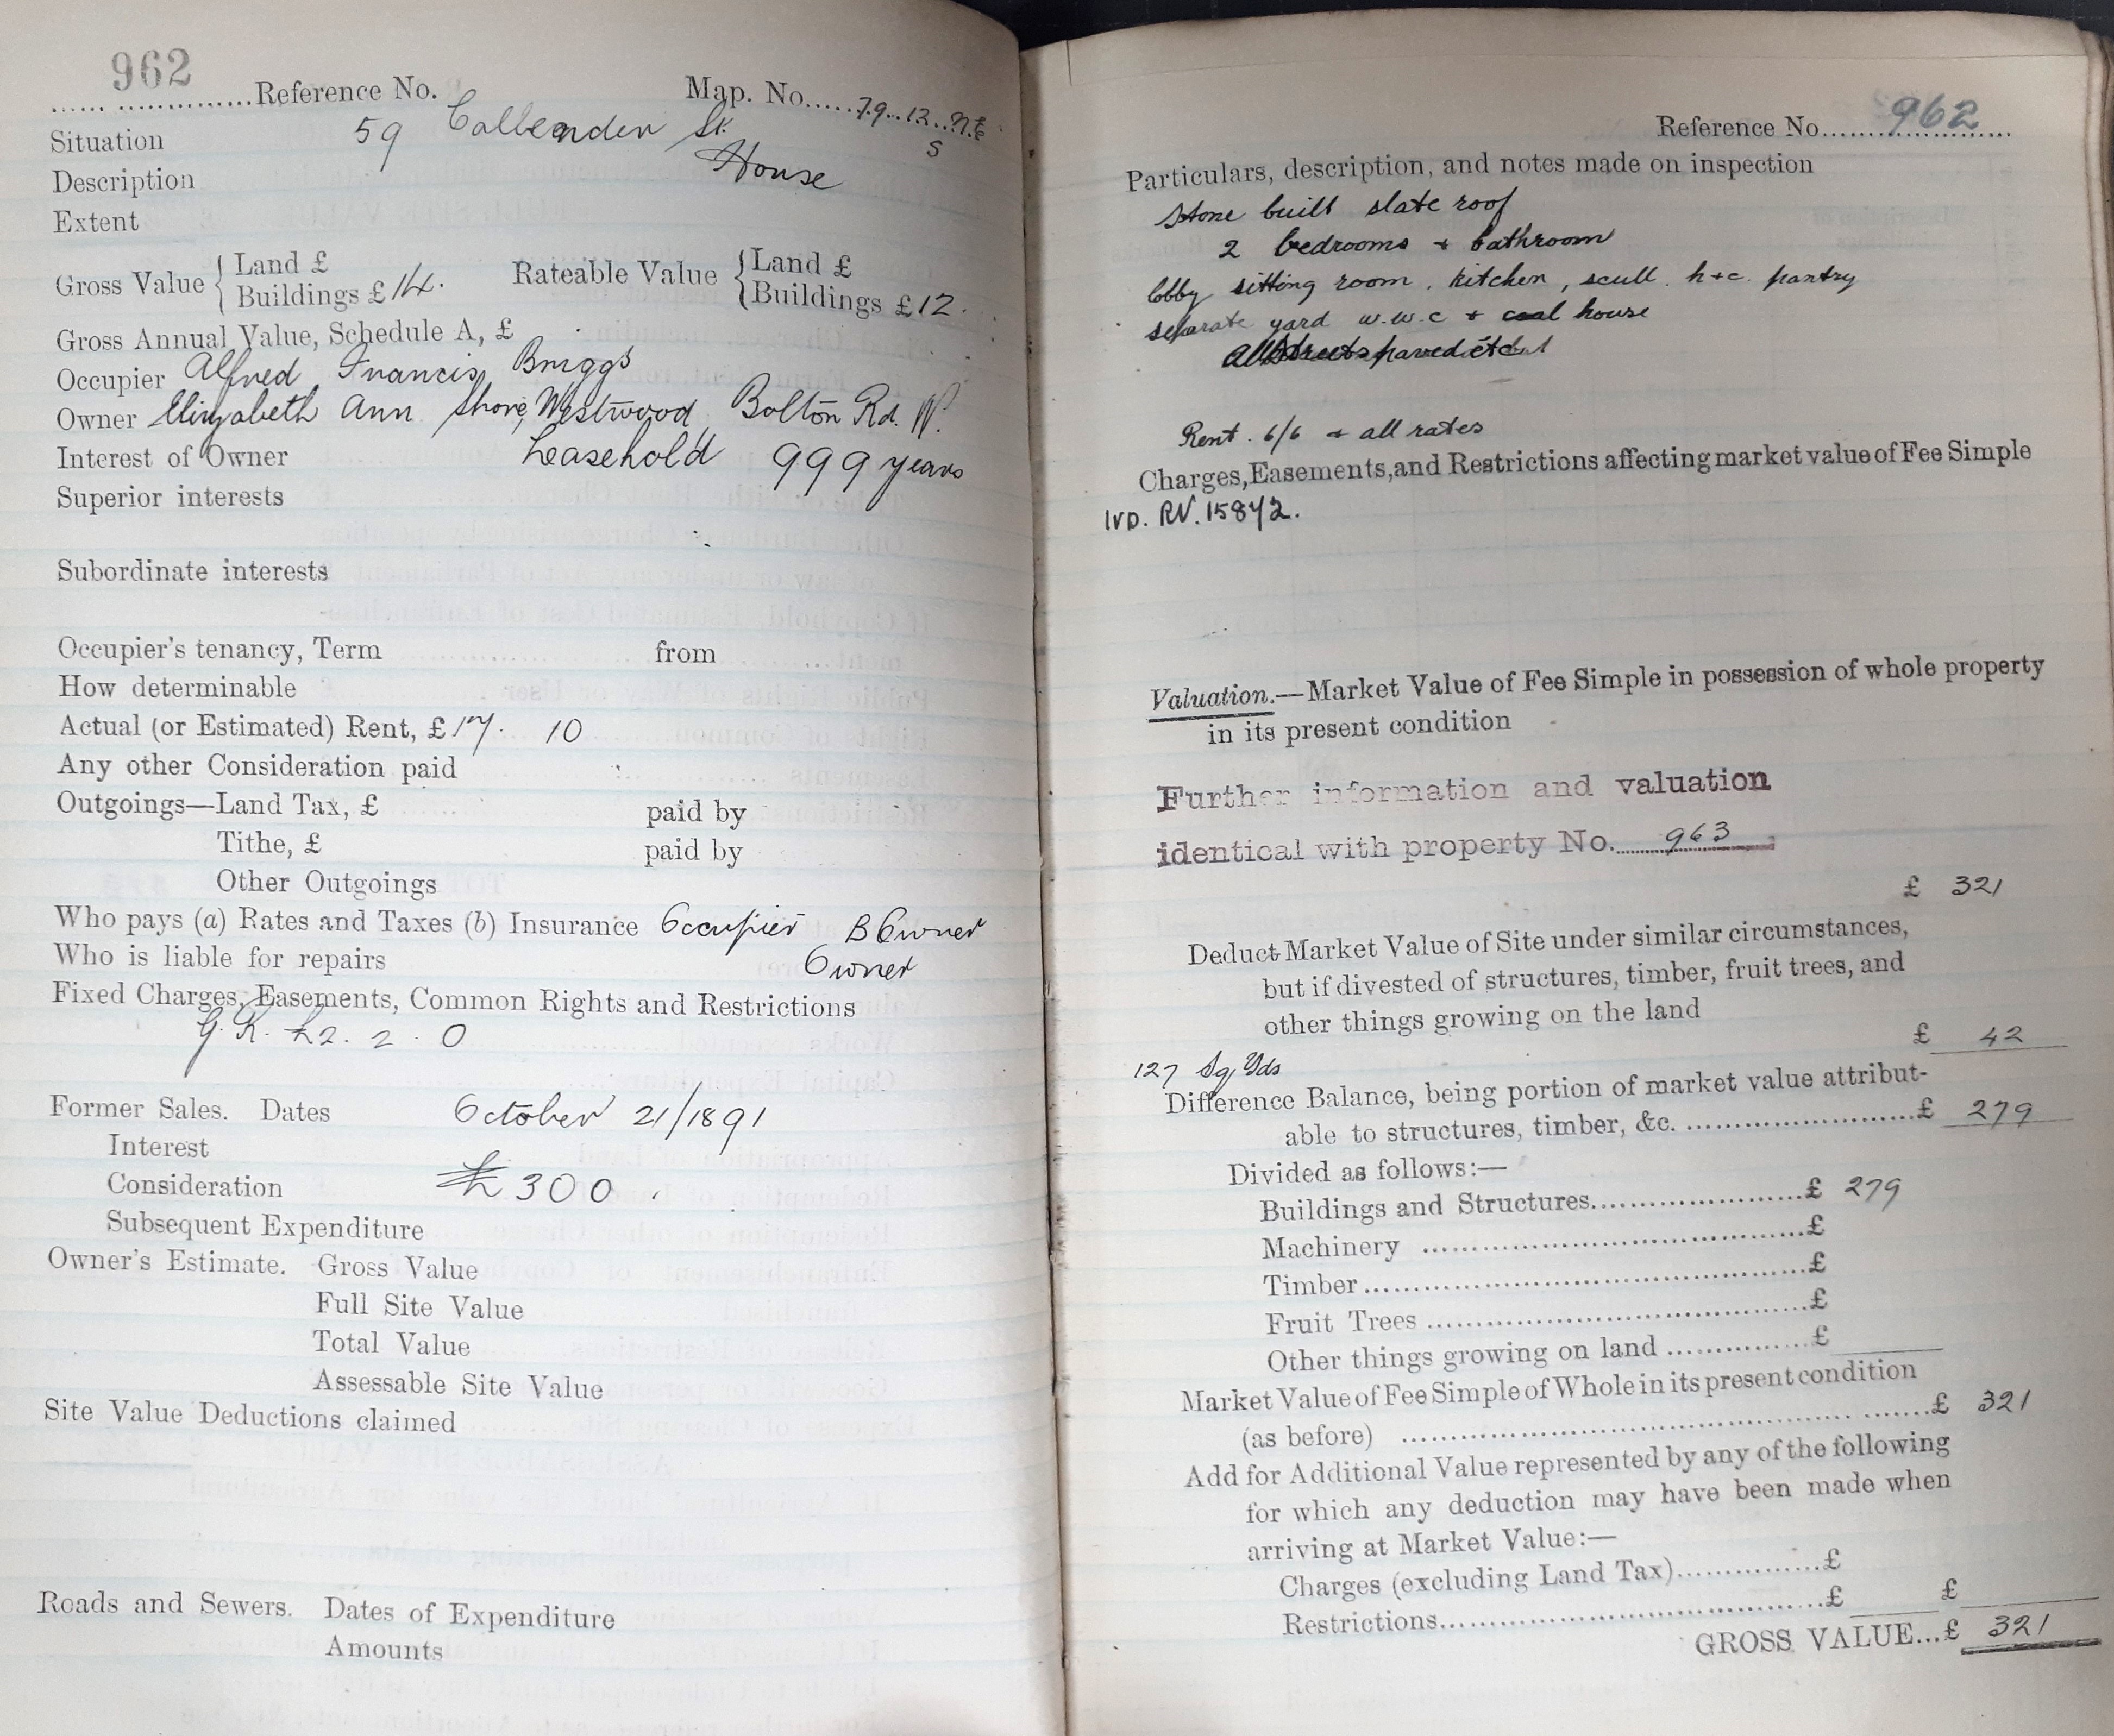 962
Reference No. Map. No. 79. 12. N.E
Situation 59 Callender St. S
Description House
Extent
Gross Value { Land £ Rateable Value { Land £
Buildings £ 14. Buildings £ 12.
Gross Annual Value, Schedule A, £
Occupier Alfred Francis Briggs
Owner Elizabeth Ann Shore, Westwood, Bolton Rd. W.
Interest of Owner Leasehold 999 years
Superior interests
Subordinate interests
Occupier's tenancy, Term from
How determinable
Actual (or Estimated) Rent, £ 17. 10
Any other Consideration paid
Outgoings—Land Tax, £ paid by
Tithe, £ paid by
Other Outgoings
Who pays (a) Rates and Taxes (b) Insurance Occupier B Owner
Who is liable for repairs Owner
Fixed Charges, Easements, Common Rights and Restrictions
G. R. £2. 2. 0
Former Sales. Dates October 21/1891
Interest
Consideration £300.
Subsequent Expenditure
Owner's Estimate. Gross Value
Full Site Value
Total Value
Assessable Site Value
Site Value Deductions claimed
Roads and Sewers. Dates of Expenditure
Amounts
Reference No. 962
Particulars, description, and notes made on inspection
Stone built slate roof
2 bedrooms + bathroom
lobby sitting room, kitchen, scull. h+c. pantry
separate yard w.w.c + coal house
All streets paved etc
Rent. 6/6 + all rates
Charges, Easements, and Restrictions affecting market value of Fee Simple
IVD. RV. 15842.
Valuation.—Market Value of Fee Simple in possession of whole property
in its present condition
Further information and valuation
identical with property No. 963
£ 321
Deduct Market Value of Site under similar circumstances,
but if divested of structures, timber, fruit trees, and
other things growing on the land
£ 42
127 Sq Yds
Difference Balance, being portion of market value attribut-
able to structures, timber, &c. £ 279
Divided as follows:—
Buildings and Structures £ 279
Machinery £
Timber £
Fruit Trees £
Other things growing on land £
Market Value of Fee Simple of Whole in its present condition
(as before) £ 321
Add for Additional Value represented by any of the following
for which any deduction may have been made when
arriving at Market Value:—
Charges (excluding Land Tax) £
Restrictions £ £
GROSS VALUE...£ 321